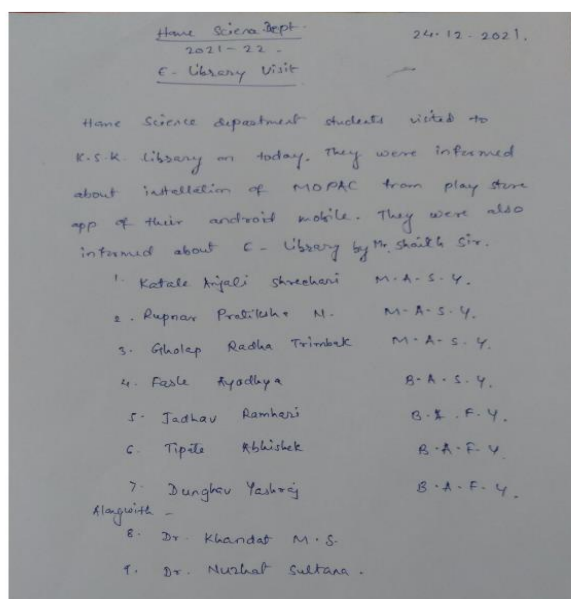 Home Science Dept.
24-12-2021.
2021-22.
E-Library Visit
Home Science department students visited to
K.S.K. Library on today. They were informed
about installation of MOPAC from play store
app of their android mobile. They were also
informed about E-Library by Mr. Shaikh Sir.
1. Katale Anjali Shreehari M.A.S.Y.
2. Rupnar Pratiksha N. M-A-S-Y.
3. Gholap Radha Trimbak M-A-S-Y.
4. Fasle Ayodhya B-A-S-Y.
5. Jadhav Ramhari B.A.F.Y.
6. Tipate Abhishek B.A.F.Y.
7. Dunghav Yashraj B.A.F.Y.
Alongwith -
8. Dr. Khandat M.S.
9. Dr. Nuzhat Sultana.